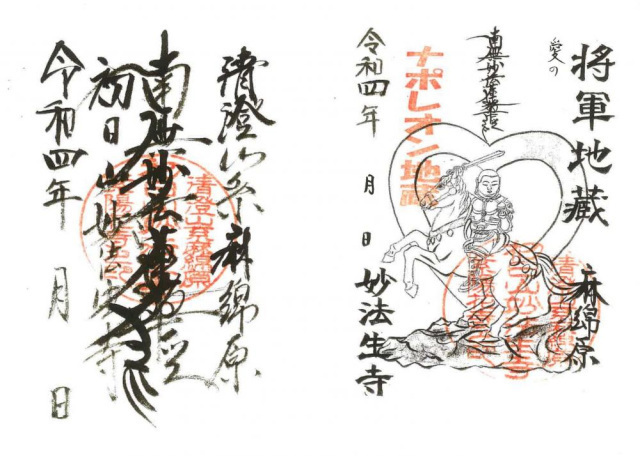 将軍地蔵 麻綿原
愛の
南無妙法蓮華経
ナポレオン地蔵
令和四年 月 日
妙法生寺
清澄山系 麻綿原
南無妙法蓮華経
初日山 妙法生寺
令和四年 月 日